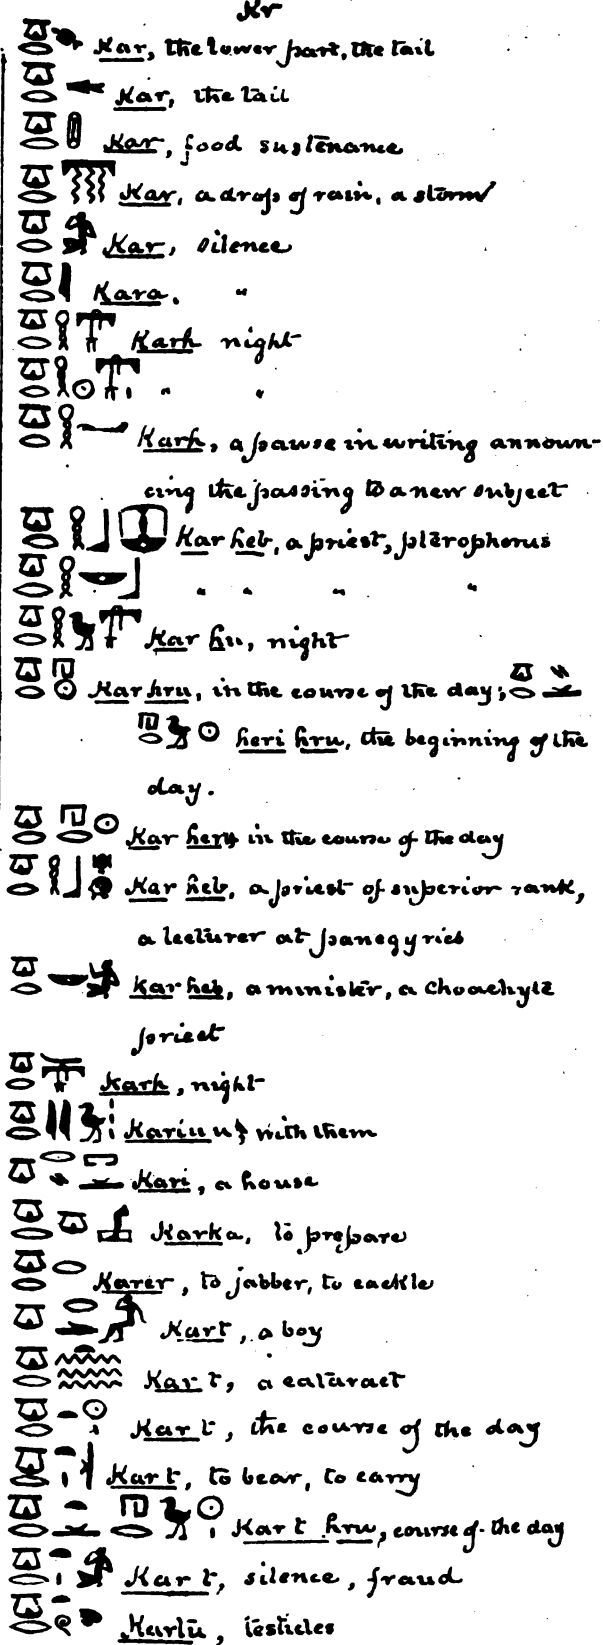 Kr
Kar, the lower part, the tail
Kar, the tail
Kar, food sustenance
Kar, a drop of rain, a storm
Kar, silence
Kara. "
Karh night
" "
Karh, a pause in writing announ-
cing the passing to a new subject
Kar heb, a priest, pterophorus
" " " "
Kar hu, night
Kar hru, in the course of the day;
heri hru, the beginning of the
day.
Kar heru in the course of the day
Kar heb, a priest of superior rank,
a lecturer at panegyries
Kar heb, a minister, a Choachyte
priest
Karh, night
Kariu u, with them
Kari, a house
Karka, to prepare
Karer, to jabber, to cackle
Kart, a boy
Kar t, a cataract
Kar t, the course of the day
Kar t, to bear, to carry
Kar t hru, course of the day
Kar t, silence, fraud
Kartu, testicles